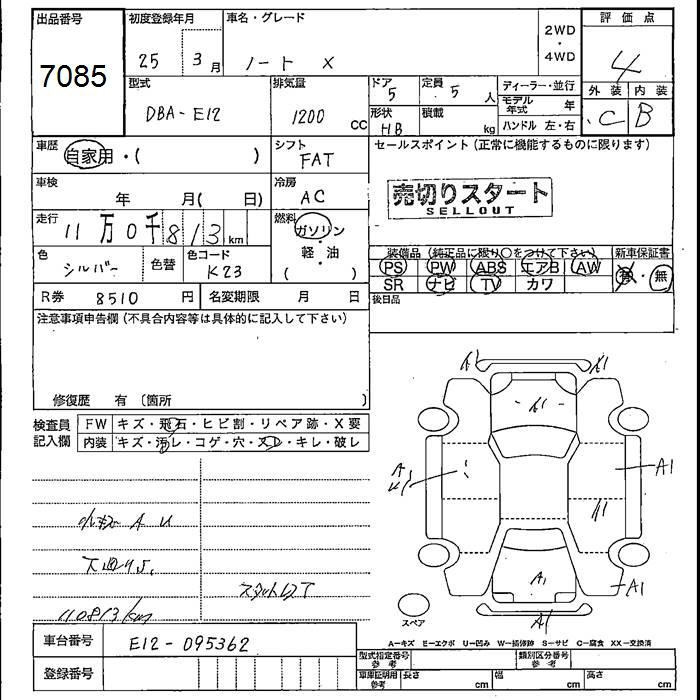 出品番号
7085
初度登録年月
25 3月
車名・グレード
ノート X
2WD
・
4WD
評価点
4
外装 内装
C B
型式
DBA-E12
排気量
1200 CC
ドア
5
定員
5 人
形状
HB
積載
kg
ディーラー・並行
モデル年式 年
ハンドル 左・右
車歴
自家用・( )
シフト
FAT
セールスポイント(正常に機能するものに限ります)
売切りスタート
SELLOUT
車検
年 月( 日)
冷房
AC
走行
11万0千813km
燃料
ガソリン
・
軽・油
( )
色
シルバー
色替
色コード
K23
装備品(純正品に限り○をつけて下さい)
新車保証書
PS PW ABS エアB AW
SR ナビ TV カワ
有・無
後日品
R券 8510 円
名変期限 月 日
注意事項申告欄(不具合内容等は具体的に記入して下さい)
修復歴 有(箇所 )
検査員
記入欄
FW キズ・飛石・ヒビ割・リペア跡・X要
内装 キズ・汚レ・コゲ・穴・スレ・キレ・破レ
小キズ A U
下廻りS.
スタットレスT
110813km
A1
A1
A1
A1
A1
A1
A1
A1
スペア
A-キズ E-エクボ U-凹み W-補修跡 S-サビ C-腐食 XX-交換済
車台番号
E12-095362
登録番号
型式指定番号
参考
類別区分番号
参考
車庫証明用
参考
長さ cm
幅 cm
高さ cm